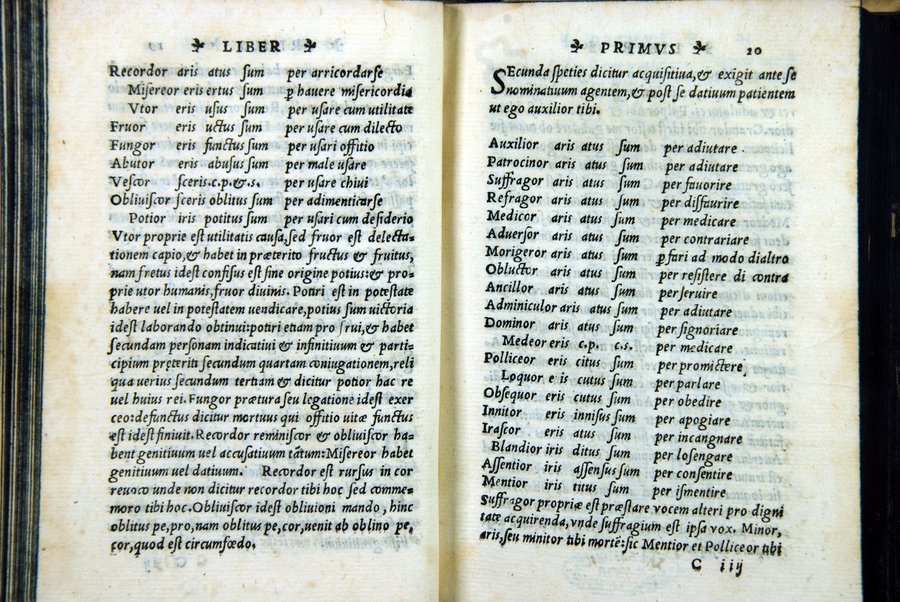 LIBER
Recordor aris atus sum per arricordarse
Misereor eris ertus sum p hauere misericordia
Vtor eris usus sum per usare cum utilitate
Fruor eris uctus sum per usare cum dilecto
Fungor eris functus sum per usari offitio
Abutor eris abusus sum per male usare
Vescor sceris.c.p.&.s. per usare chiui
Obliuiscor sceris oblitus sum per adimenticarse
Potior iris potitus sum per usari cum desiderio
Vtor proprie est utilitatis causa, sed fruor est delecta-
tionem capio, & habet in præterito fructus & fruitus,
nam fretus idest confisus est sine origine potius: & pro-
prie utor humanis, fruor diuinis. Potiri est in potestate
habere uel in potestatem uendicare, potius sum uictoria
idest laborando obtinui: potiri etiam pro frui, & habet
secundam personam indicatiui & infinitiuum & parti-
cipium præteriti secundum quartam coniugationem, reli
qua uerius secundum tertiam & dicitur potior hac re
uel huius rei. Fungor prætura seu legatione idest exer
ceo: defunctus dicitur mortuus qui offitio uitæ functus
est idest finiuit. Recordor reminiscor & obliuiscor ha-
bent genitiuum uel accusatiuum tātum: Misereor habet
genitiuum uel datiuum. Recordor est rursus in cor
reuoco unde non dicitur recordor tibi hoc sed comme-
moro tibi hoc. Obliuiscor idest obliuioni mando, hinc
oblitus pe, pro, nam oblitus pe, cor, uenit ab oblino pe,
cor, quod est circumfœdo.
PRIMVS 20
SEcunda speties dicitur acquisitiua, & exigit ante se
nominatiuum agentem, & post se datiuum patientem
ut ego auxilior tibi.
Auxilior aris atus sum per adiutare
Patrocinor aris atus sum per adiutare
Suffragor aris atus sum per fauorire
Refragor aris atus sum per disfaurire
Medicor aris atus sum per medicare
Aduersor aris atus sum per contrariare
Morigeror aris atus sum p fari ad modo dialtro
Obluctor aris atus sum per resistere di contra
Ancillor aris atus sum per seruire
Adminiculor aris atus sum per adiutare
Dominor aris atus sum per signoriare
Medeor eris c.p. c.s. per medicare
Polliceor eris citus sum per promictere,
Loquor e is cutus sum per parlare
Obsequor eris cutus sum per obedire
Innitor eris innisus sum per apogiare
Irascor eris atus sum per incangnare
Blandior iris ditus sum per losengare
Assentior iris assensus sum per consentire
Mentior iris titus sum per ismentire
Suffragor propriæ est præstare vocem alteri pro digni
tate acquirenda, vnde suffragium est ipsa vox. Minor,
aris, seu minitor tibi mortē: sic Mentior et Polliceor tibi
C iij